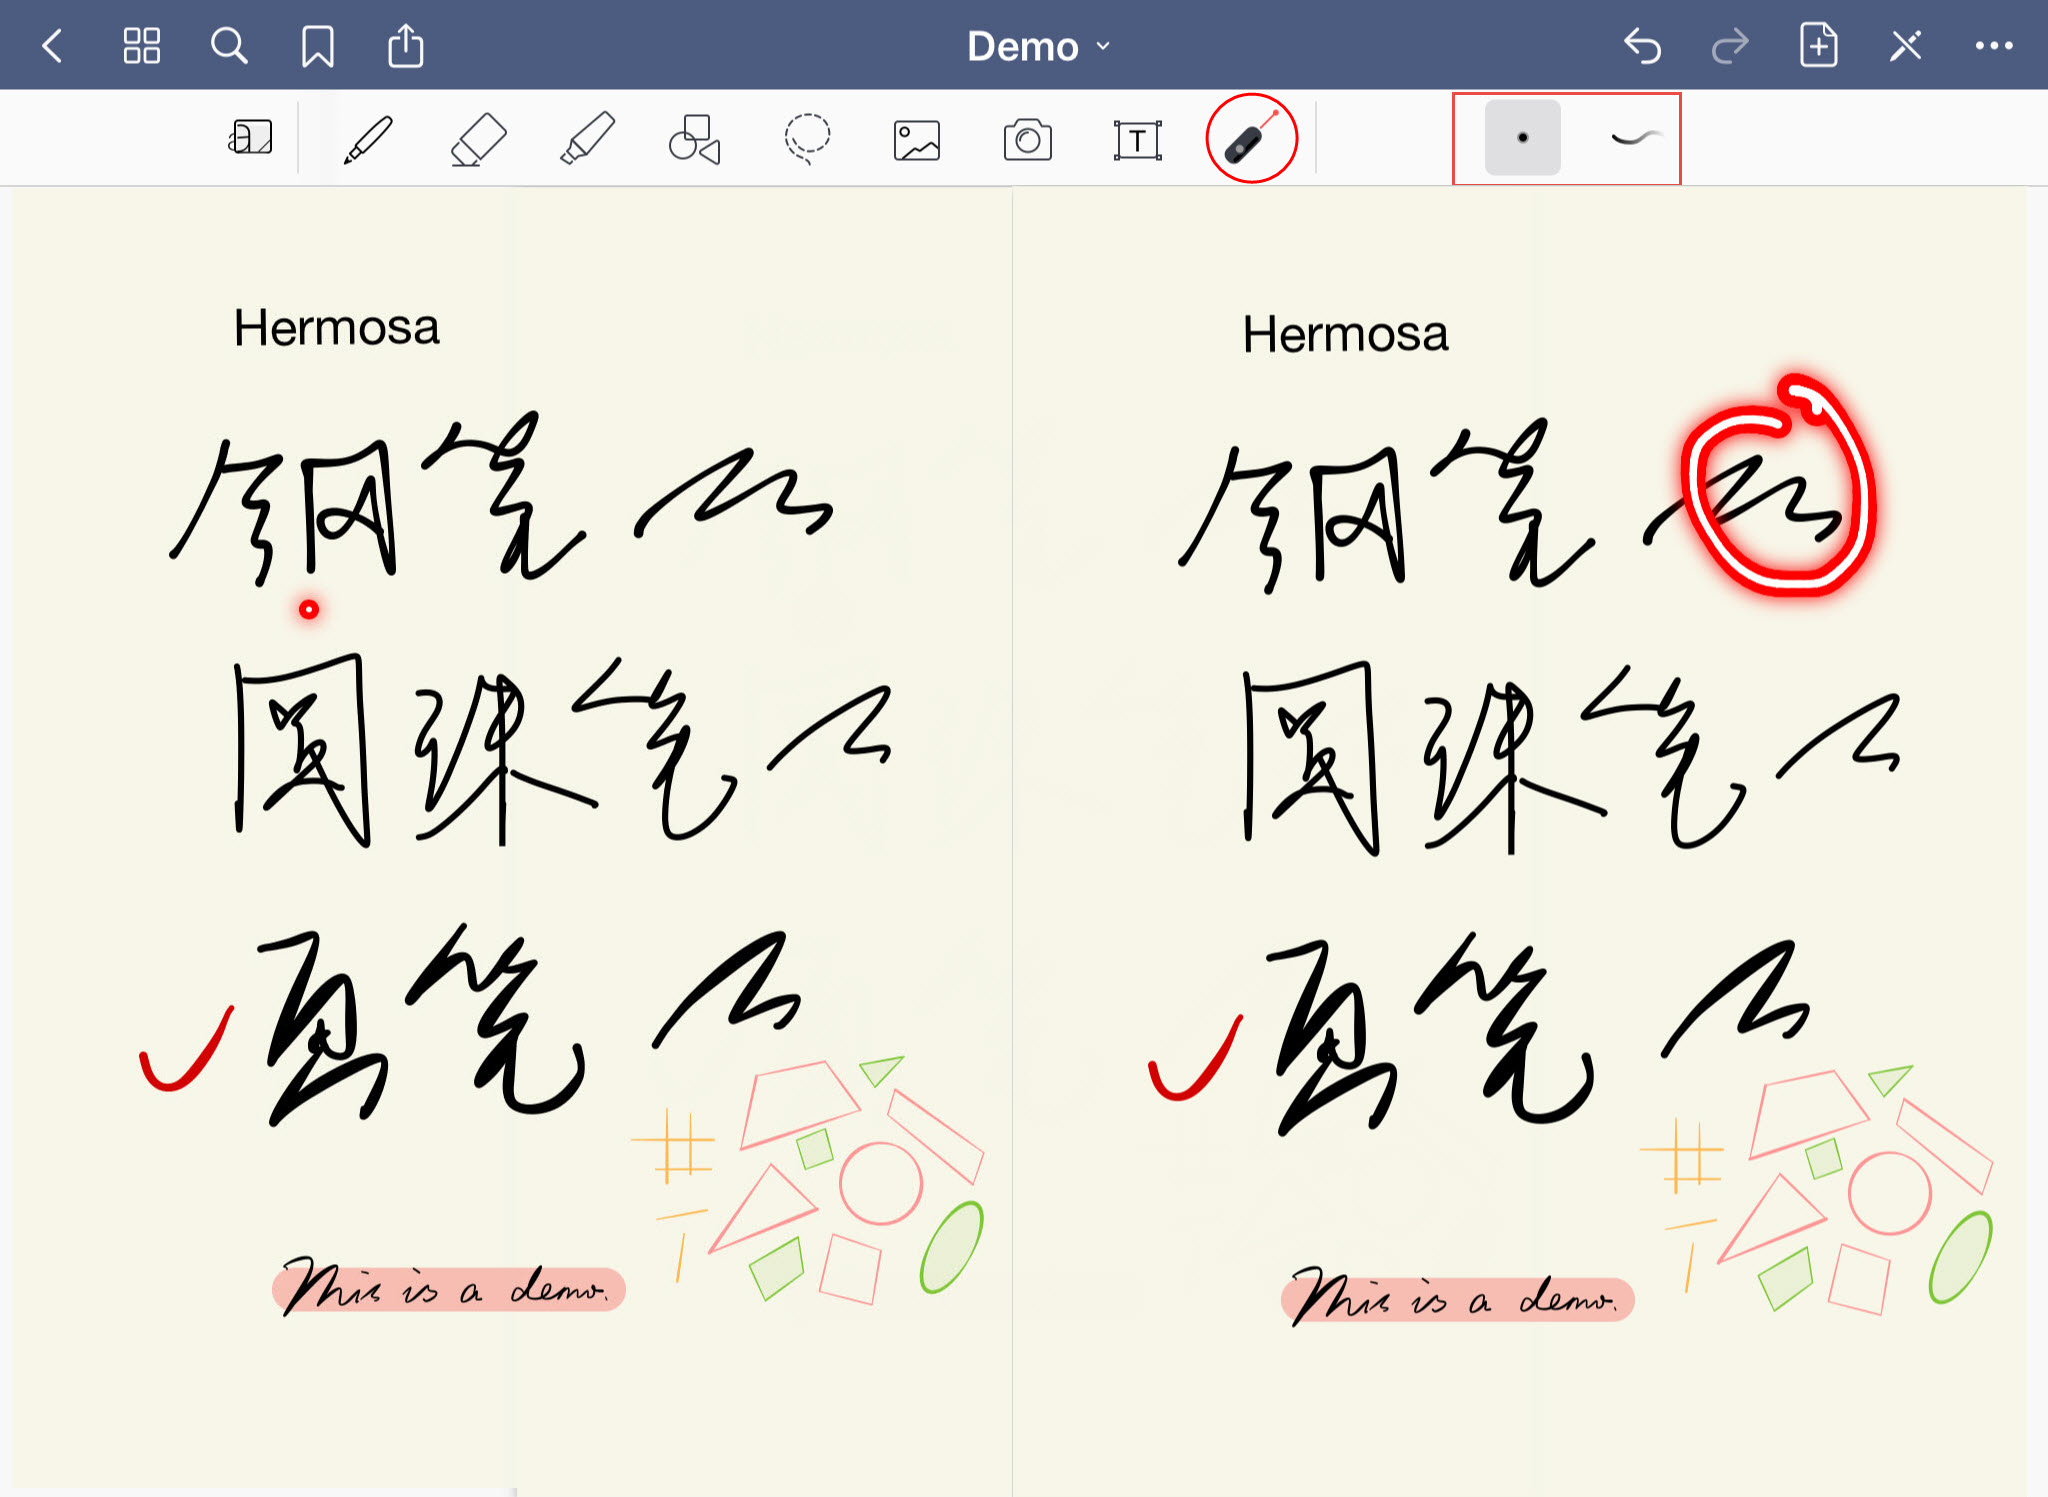 Demo
T
Hermosa
钢笔
圆珠笔
画笔
This is a demo.
Hermosa
钢笔
圆珠笔
画笔
This is a demo.